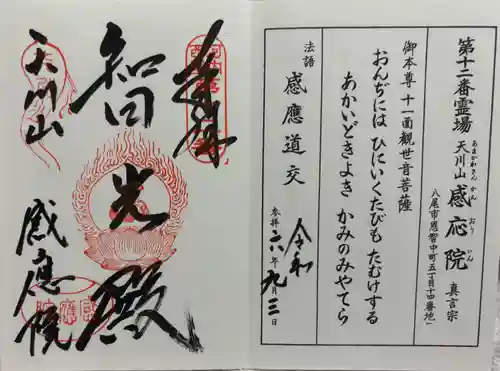 第十二番霊場 天川山 感応院 真言宗
あまかわさん かん おう いん
八尾市恩智中町五丁目十四番地一
御本尊 十一面観世音菩薩
おんぢには ひにいくたびも たむけする
あかいどきよき かみのみやてら
法語 感應道交
参拝 令和 六年九月三日
奉拝
智光殿
天川山
感應院